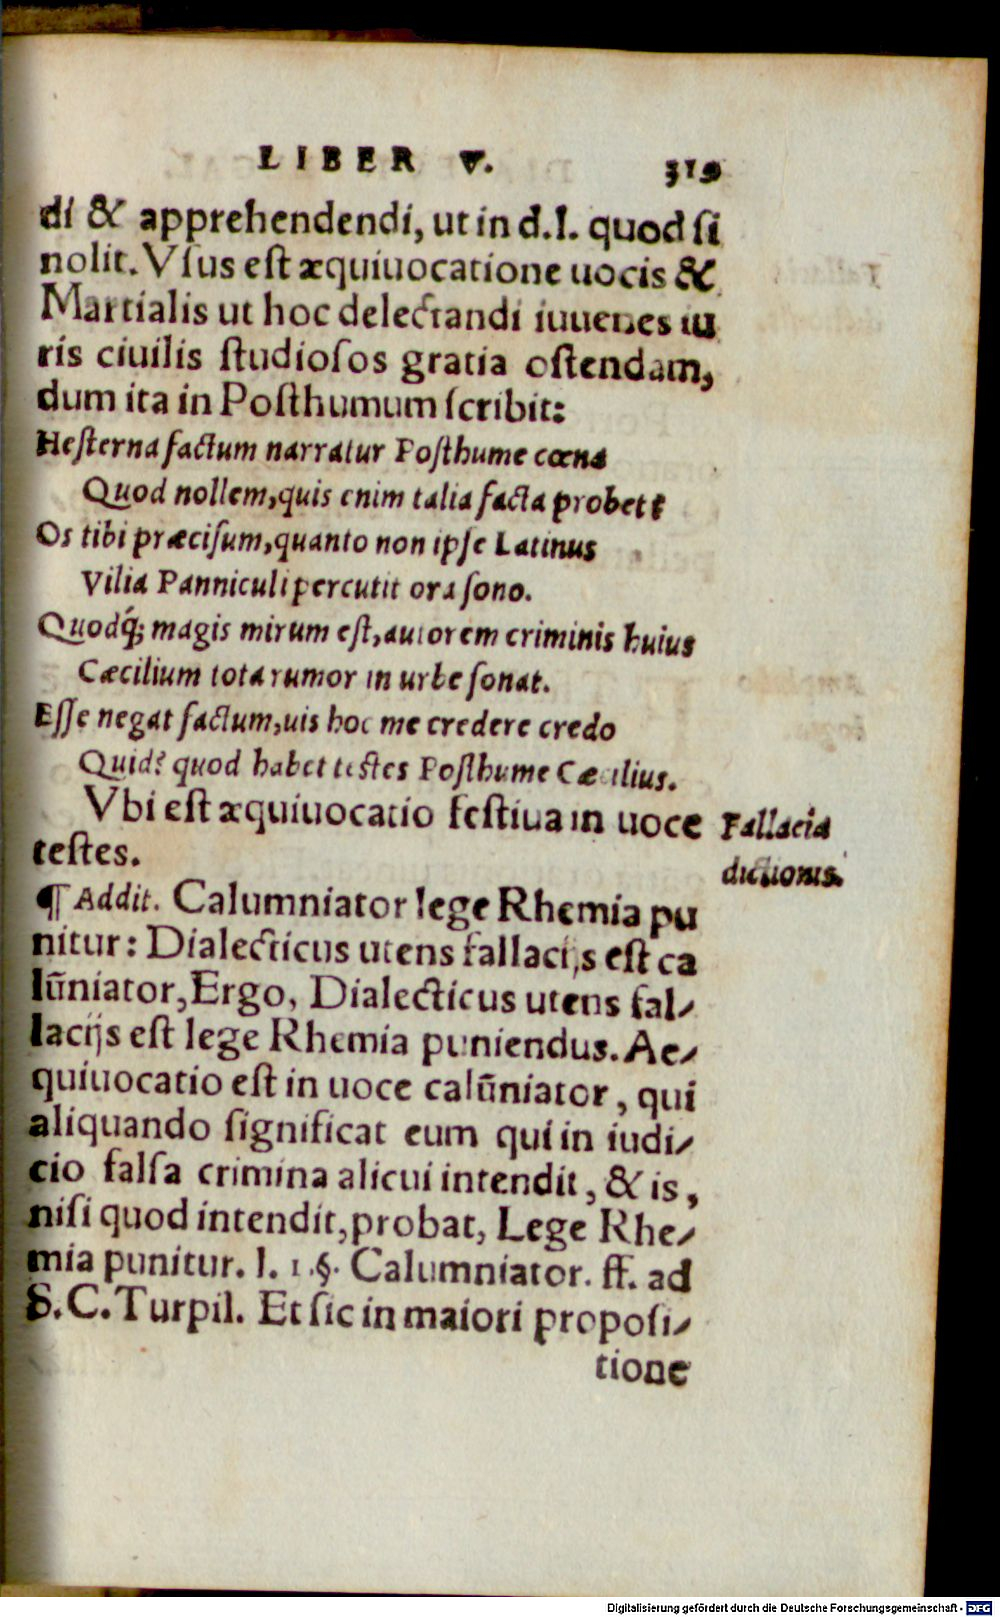 LIBER V. 319
di & apprehendendi, ut in d.l. quod si
nolit. Vsus est æquiuocatione uocis &
Martialis ut hoc delectandi iuuenes iu
ris ciuilis studiosos gratia ostendam,
dum ita in Posthumum scribit:
Hesterna factum narratur Posthume cœna
Quod nollem, quis enim talia facta probet?
Os tibi præcisum, quanto non ipse Latinus
Vilia Panniculi percutit ora sono.
Quodq́; magis mirum est, autorem criminis huius
Cæcilium tota rumor in urbe sonat.
Esse negat factum, uis hoc me credere credo
Quid? quod habet testes Posthume Cæcilius.
Vbi est æquiuocatio festiua in uoce
testes.
Fallacia
dictionis.
¶ Addit. Calumniator lege Rhemia pu
nitur: Dialecticus utens fallacijs est ca
lūniator, Ergo, Dialecticus utens fal-
lacijs est lege Rhemia puniendus. Ae-
quiuocatio est in uoce calūniator, qui
aliquando significat eum qui in iudi-
cio falsa crimina alicui intendit, & is,
nisi quod intendit, probat, Lege Rhe-
mia punitur. l. 1.§. Calumniator. ff. ad
S.C. Turpil. Et sic in maiori proposi-
tione
Digitalisierung gefördert durch die Deutsche Forschungsgemeinschaft - DFG